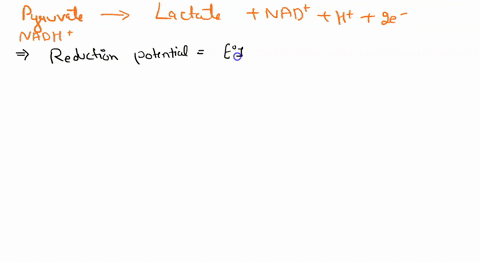 Pyruvate → Lactate + NAD⁺ + H⁺ + 2e⁻
NADH⁺
⇒ Reduction potential = E°